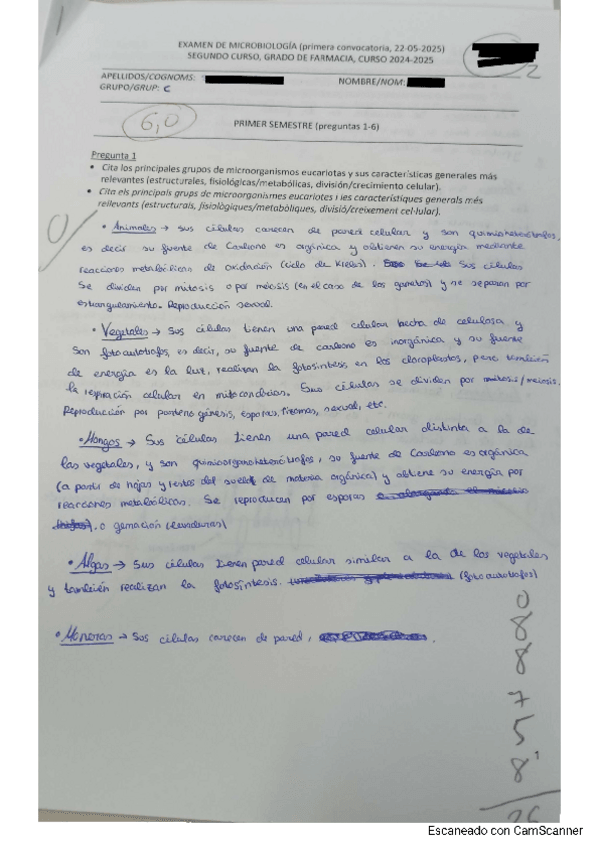 EXAMEN DE MICROBIOLOGÍA (primera convocatoria, 22-05-2025)
SEGUNDO CURSO, GRADO DE FARMACIA, CURSO 2024-2025
2
APELLIDOS/COGNOMS:
NOMBRE/NOM:
GRUPO/GRUP: C
6,0
PRIMER SEMESTRE (preguntas 1-6)
Pregunta 1
• Cita los principales grupos de microorganismos eucariotas y sus características generales más
relevantes (estructurales, fisiológicas/metabólicas, división/crecimiento celular).
• Cita els principals grups de microorganismes eucariotes i les característiques generals més
rellevants (estructurals, fisiològiques/metabòliques, divisió/creixement cel·lular).
0
• Animales → sus células carecen de pared celular y son quimioheterótrofas,
es decir su fuente de Carbono es orgánica y obtienen su energía mediante
reacciones metabólicas de oxidación (ciclo de Krebs). Sus células
se dividen por mitosis o por meiosis (en el caso de los gametos) y se separan por
estrangulamiento. Reproducción sexual.
• Vegetales → Sus células tienen una pared celular hecha de celulosa y
son fotoautótrofos, es decir, su fuente de carbono es inorgánica y su fuente
de energía es la luz, realizan la fotosíntesis en los cloroplastos, pero también
la respiración celular en mitocondrias. Sus células se dividen por mitosis/meiosis.
Reproducción por partenogénesis, esporas, sexual, etc.
• Hongos → Sus células tienen una pared celular distinta a la de
las vegetales, y son quimioorganoheterótrofos, su fuente de Carbono es orgánica
(a partir de hojas y restos del suelo de materia orgánica) y obtiene su energía por
reacciones metabólicas. Se reproducen por esporas
o gemación (levaduras)
• Algas → Sus células tienen pared celular similar a la de los vegetales
y también realizan la fotosíntesis. (fotoautótrofos)
• Moneras → Sus células carecen de pared,
0
8
8
7
5
8
Escaneado con CamScanner